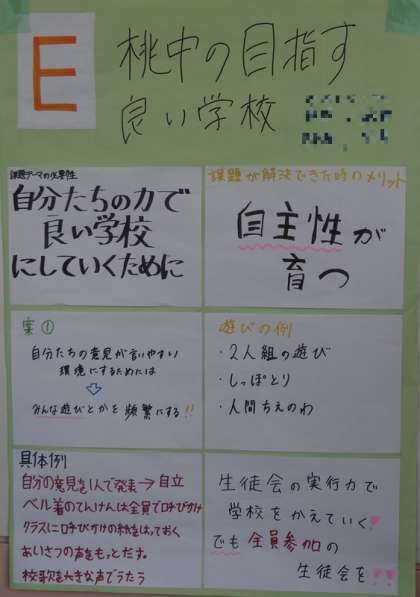 E
桃中の目指す
良い学校
課題テーマの必要性
自分たちの力で
良い学校
にしていくために
課題が解決できた時のメリット
自主性が
育つ
案①
自分たちの意見が言いやすい
環境にするためには
みんな遊びとかを頻繁にする!!
遊びの例
・2人組の遊び
・しっぽとり
・人間ちえのわ
具体例
自分の意見を1人で発表→自立
ベル着のてんけんは全員で呼びかけ
クラスに呼びかけの紙をはっておく
あいさつの声をもっとだす。
校歌を大きな声でうたう
生徒会の実行力で
学校をかえていく!
でも全員参加の
生徒会を!!